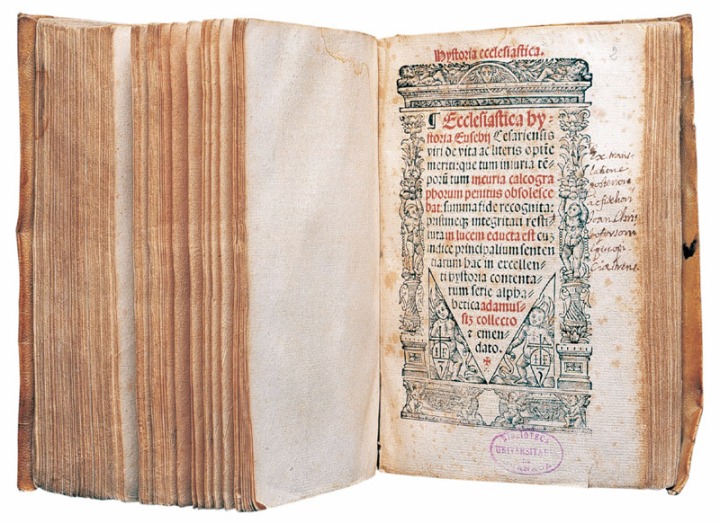 Hystoria ecclesiastica.
2
¶ Ecclesiastica hy-
storia Eusebij Cesariensis
viri de vita ac literis optĩe
meriti: que tum iniuria tẽ-
poꝝ tum incuria calcogra
phorum penitus obsolesce
bat: summa fide recognita:
pristineqʒ integritati resti-
tuta in lucem educta est cuʒ
indice principalium senten
tiarum hac in excellen-
ti hystoria contenta-
rum serie alpha-
betica adamus-
siʒ collecto
⁊ emen-
dato.
Ex trans-
latione
posteriore
BIBLIOTECA
UNIVERSITARIA